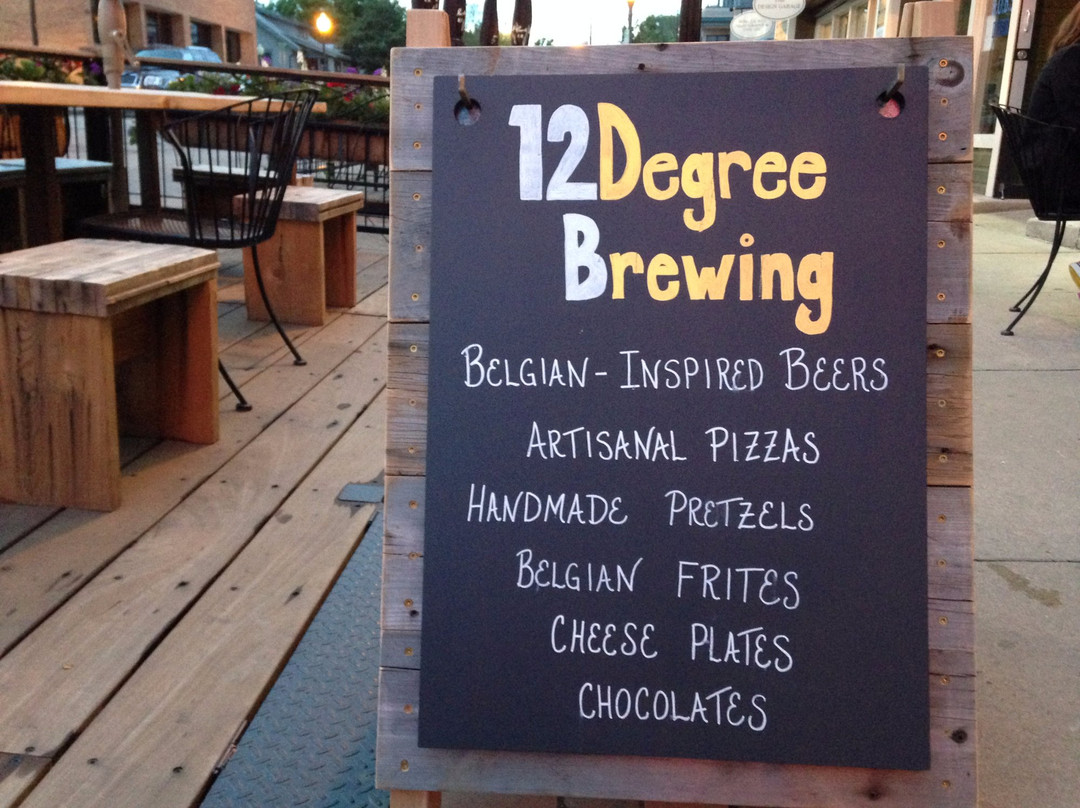 12Degree
Brewing
BELGIAN-INSPIRED BEERS
ARTISANAL PIZZAS
HANDMADE PRETZELS
BELGIAN FRITES
CHEESE PLATES
CHOCOLATES